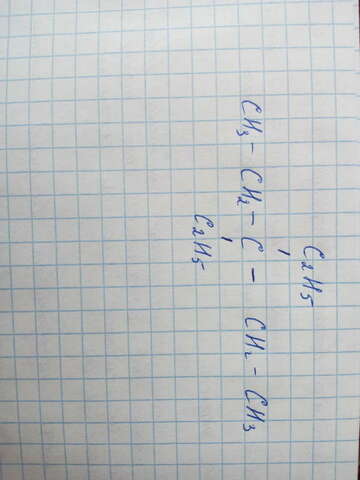 C2H5
CH3 - CH2 - C - CH2 - CH3
C2H5